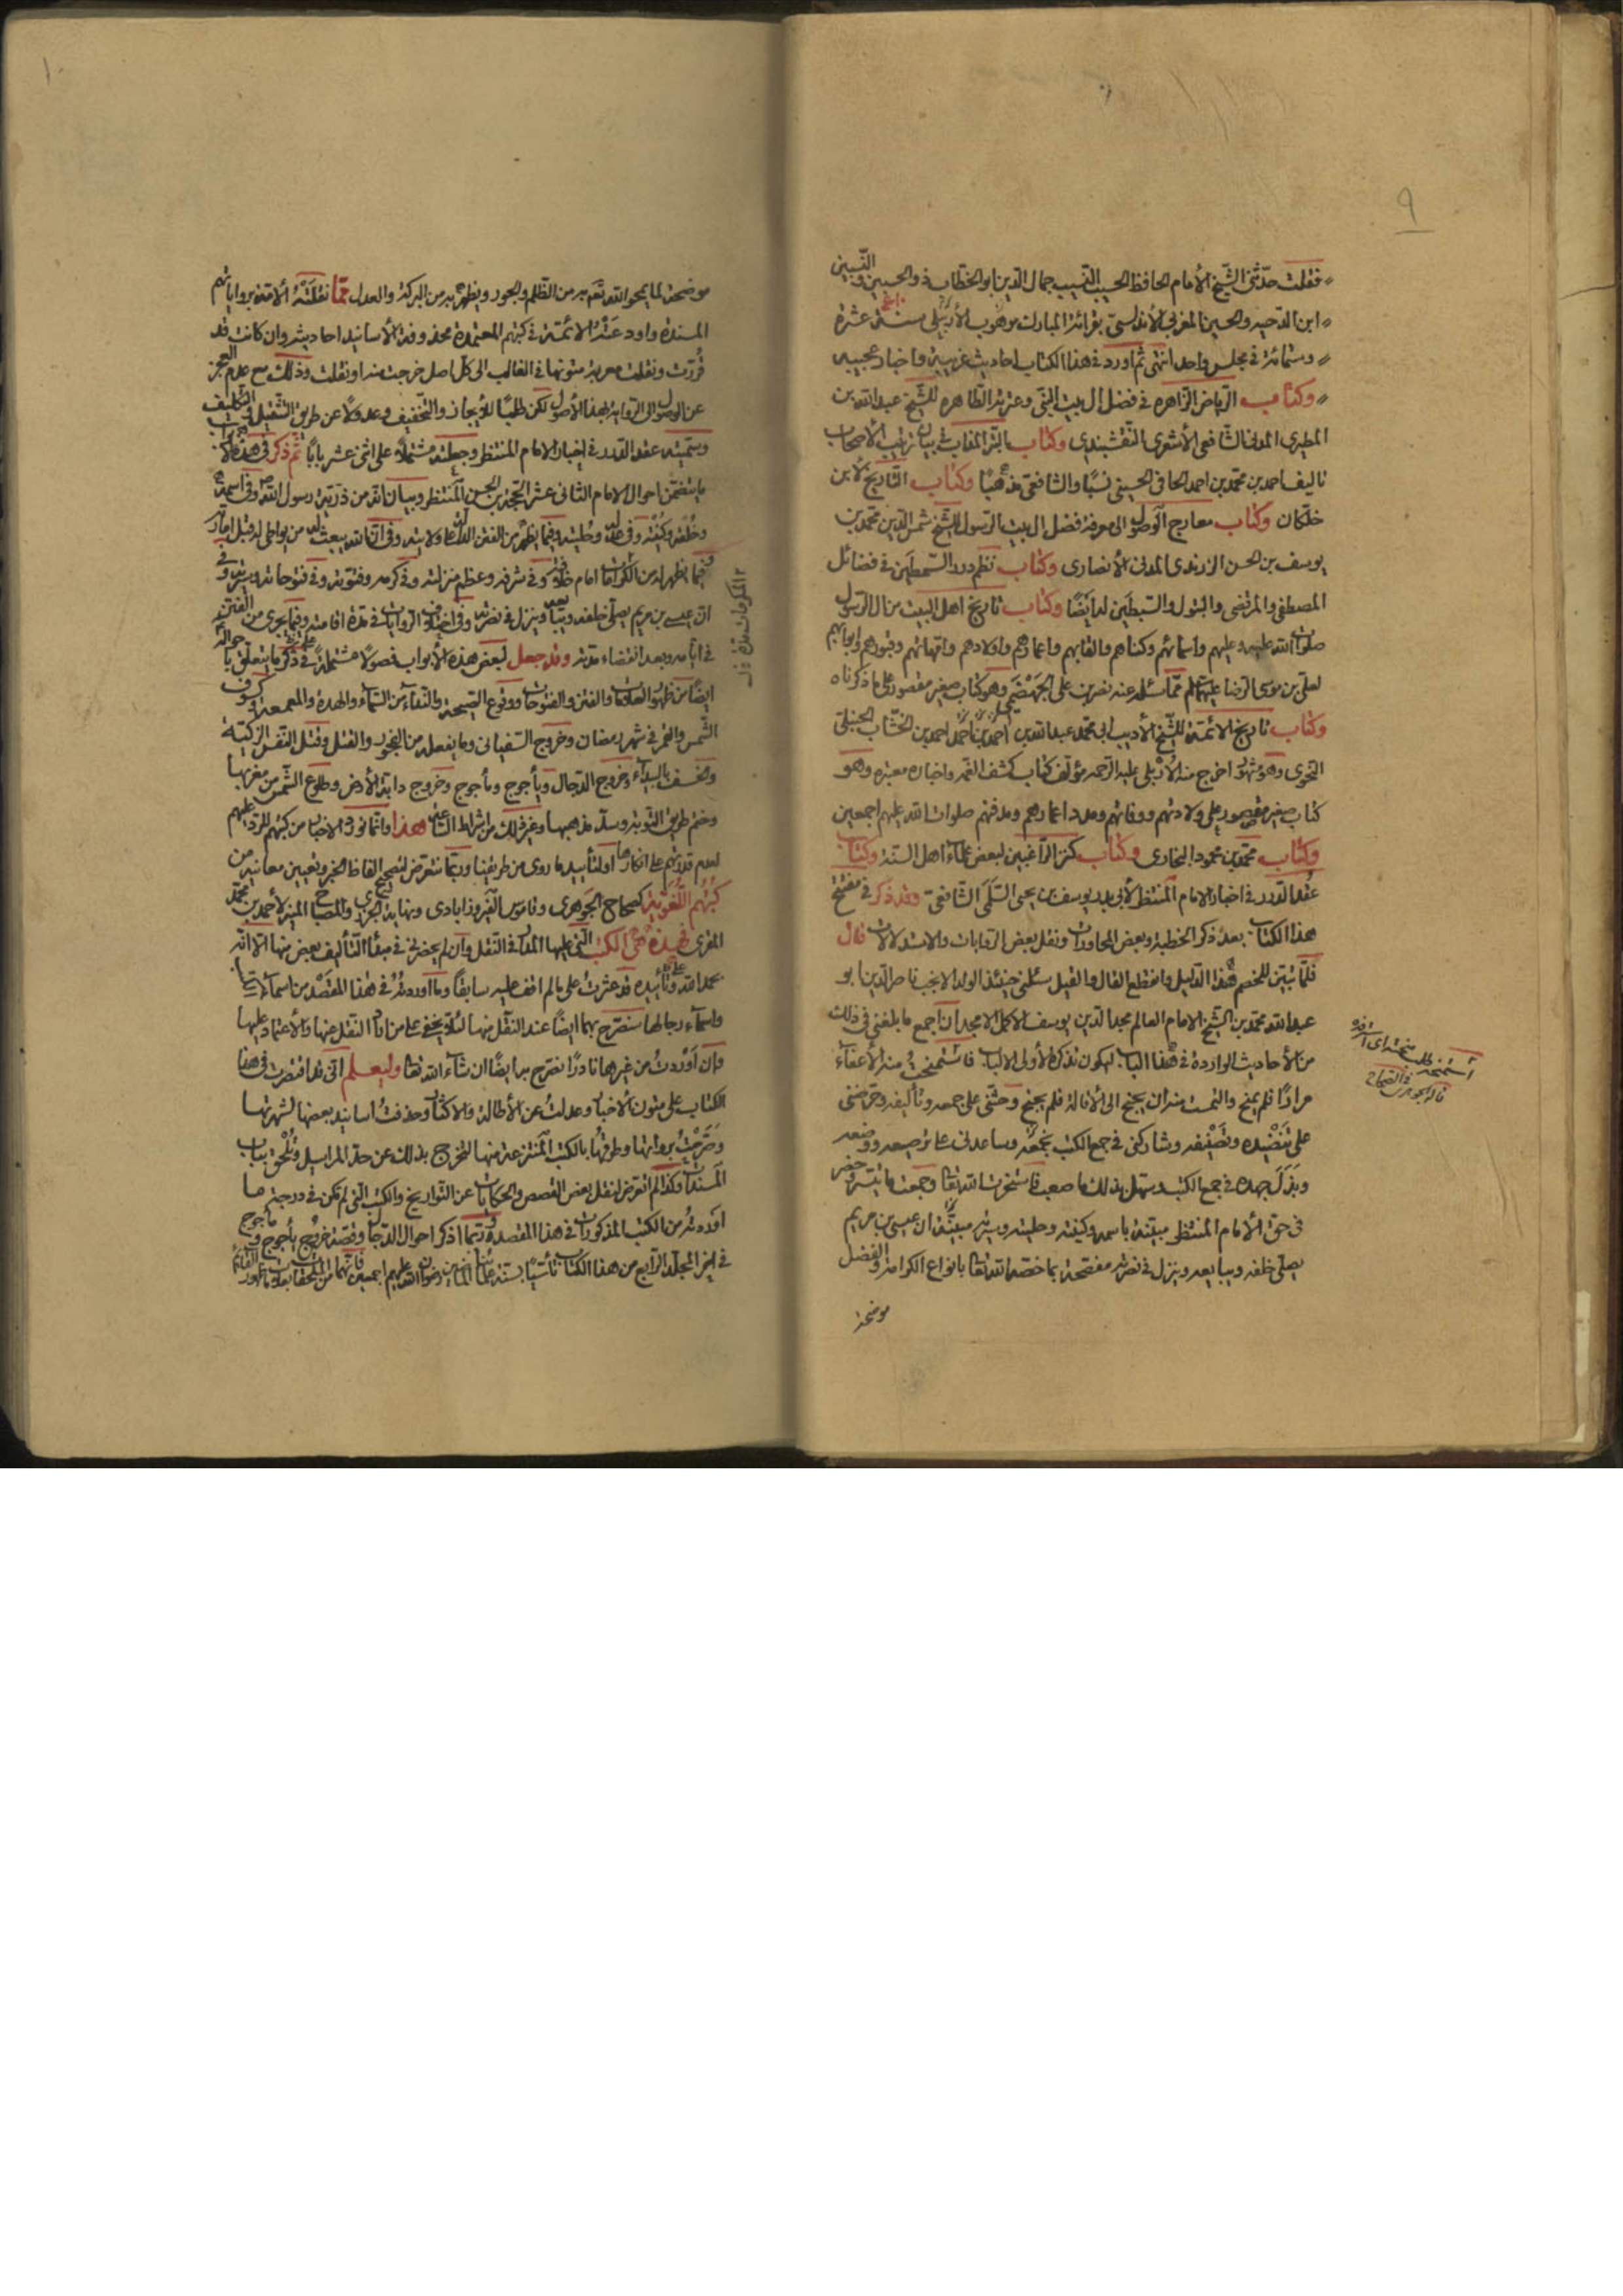 ٩
فقلت حدّثنی الشّیخ الأمام الحافظ الحسیب النّسیب جمال الدّین ابو الخطّاب ذو الحسبین و النّسبین
ابن الدّحیه والحسین المغربی الأندلسیّ بقرائة المبارك بن موهوب الأربلی سنة عشرة
وستمائة فی مجلس واحد انتهی ثمّ اورد فی هذا الکتاب احادیث غریبة واخبار عجیبه
وکتاب الرّیاض الزّاهره فی فضل ال بیت النّبی وعترته الطّاهره للشّیخ عبدالله بن
المطیری المدنی الشّافعی الأشعری النّقشبندی وکتاب بالتّبر المذاب فی بیان ترتیب الأصحاب
تالیف احمد بن محمّد بن احمد الحافی الحسینی نسبًا والشافعی مذهبًا وکتاب التّاریخ لابن
خلّکان وکتاب معارج الوصول الی معرفة فضل ال بیت الرّسول للشّیخ شمس الدّین محمّد بن
یوسف بن الحسن الزرندی المدنی الأنصاری وکتاب نظم درر السّمطین فی فضائل
المصطفی والمرتضی والبتول والسّبطین له ایضًا وکتاب تاریخ اهل البیت من ال الرّسول
صلوات الله علیه وعلیهم واسمائهم وکناهم والقابهم واعمارهم واولادهم وامّهاتهم وقبورهم وابوابهم
لعلیّ بن موسی الرّضا علیهما السلم ممّا سئله عنه نصر بن علی الجهضمی وهو کتاب صغیر مقصور علی ما ذکرناه
وکتاب تاریخ الائمّة للشّیخ الأدیب ابی محمّد عبدالله بن احمد بن احمد بن احمد بن الخشّاب الحنبلیّ
النّحوی وهو مشهور اخرج منه الأربلی علیه الرّحمه مؤلّف کتاب کشف الغمّه واخباره معتبره وهو
کتاب صغیر مقصور علی ولادتهم ووفاتهم وعدد اعمارهم ومدفنهم صلوات الله علیهم اجمعین
وکتاب محمّد بن محمود البخاری وکتاب کنز الرّاغبین لبعض علماء اهل السنّة وکتاب
عقد الدّرر فی اخبار الامام المنتظر لأبی بدر یوسف بن یحیی السّلمی الشّافعی وقد ذکر فی مفتتح
هذا الکتاب بعد ذکر الخطبة وبعض المحاورات ونقل بعض الرّوایات والاستدلالات قال
فلمّا تبیّن للخصم هذا الدّلیل وانقطع القال والقیل سئلنی حینئذ الولد الانجب ناصر الدّین ابو
عبدالله محمّد بن الشّیخ الامام العالم مجد الدّین یوسف الاکمل الامجد ان اجمع ما بلغنی فی ذلك
من الأحادیث الواردة فی هذا الباب لیکون تذکرة لأولی الالباب فاستمنحت منه الأعفاء
مرارًا فلم یمنح والتمست منه ان یجنح الی الأقالة فلم یجنح وحثّنی علی جمعه وتألیفه وحرّضنی
علی تنضیده وتصنیفه وشارکنی فی جمع الکتب بجمعه وساعدنی علی ترصیعه ووضعه
وبذل جهده فی جمع الکتب وسهّل بذلك ما صعب فاستخرت الله تعالی وجمعت ما تیسّر وحضر
فی حقّ الأمام المنتظر مبیّنة باسمه وکنیته وحلیته وسیرته مبیّنة ان عیسی بن مریم
یصلّی خلفه ویبایعه وینزل فی نصرته مفتتحة بما خصّه الله تعالی بانواع الکرامة والفضل
موضحة
استمنحه طلب منحته ای استرفده
قاله الجوهری فی الصّحاح
١٠
موضحة لما یمحو الله تعالی به من الظّلم والجور ویظهر به من البرکة والعدل ممّا نقلته الأمّة بروایاتهم
المسندة واودعته الائمّة فی کتبهم المعتمدة محذوفة الأسانید احادیثه وان کانت قد
قُرِئت ونقلت معریة متونها فی الغالب الی کلّ اصل خرجت منه او نقلت وذلك مع عدم العجز
عن الوصول الی الرّوایة بهذا الأصول لکن طلبًا للأیجاز والتّخفیف وعدولًا عن طریق التّثقیل والتّکلیف
وسمّیته عقد الدّرر فی اخبار الامام المنتظر وجعلته مشتملًا علی اثنی عشر بابًا ثمّ ذکر فی هذه الابواب
ما یتضمّن احوال الامام الثانی عشر الحجّة بن الحسن المنتظر وبیان انّه من ذرّیّة رسول الله وفی اسمه
وخُلقه وکنیته وفی عدله وحلیته وفیما یظهر من الفتن الدّالة علی ولایته وفی انّ الله یبعث له من یوطی له قبل امارته
وفیما یظهر له من الکرامات ایام خلافته وفی شرفه وعظم منزلته وفی کرمه وفتوّته وفی فتوحاته وسیرته وفی
ان عیسی بن مریم یصلّی خلفه ویبایعه وینزل فی نصرته وفی اختلاف الرّوایات فی مدّة اقامته وفیما یجری من الفتن
فی ایّامه وبعد انقضاء مدّته وقد جعل لبعض هذه الأبواب فصولًا مشتملة علی ذکر ما یتعلّق باحواله
ایضًا من ظهور العلامات والفتن والفتوحات ووقوع الصّیحة والنّداء من السّماء والهدة والمعمعة وکسوف
الشّمس والقمر فی شهر رمضان وخروج السّفیانی وما یفعله من الفجور والقتل وقتل النّفس الزکیّة
وخسف بالبیداء وخروج الدّجال ویأجوج ومأجوج وخروج دابّة الأرض وطلوع الشّمس من مغربها
وختم طریق التّوبة وسدّ مذهبها وغیر ذلك من اشراط السّاعة هذا وانّما نورد الاخبار من کتبهم للرّد علیهم
لعدم قدرتهم علی انکارها او لتأیید ما روی من طریقنا وربّما نتعرّض لتصحیح الفاظ الخبر وتعیین معانیه من
کتبهم اللّغویّة کصحاح الجوهری وقاموس الفیروزابادی ونهایة الجزری والمصباح المنیر لأحمد بن محمّد
المقری فهذه هی الکتب الّتی علیها المدار فی النّقل وان لم یحضرنی فی مبدأ التّألیف بعض منها الّا انّه
بحمد الله وتأییده قد عثرت علی ما لم اقف علیه سابقًا وما اوردته فی هذا المقصد من اسماء کتبها
واسماء رجالها سنصرّح بها ایضًا عند النّقل منها لئلّا یخفی علی من اراد النّقل عنها والأعتماد علیها
وان اوردت من غیرها نادرًا نصرّح بها ایضًا ان شاء الله تعالی ولیعلم انّی قد اقتصرت فی هذا
الکتاب علی متون الأخبار وعدلت عن الأطالة والاکثار وحذفت اسانید بعضها لشهرتها
وصرّحت برواتها وطرقها بالکتب المنتزعة منها لتخرج بذلك عن حدّ المراسیل وتلحق بباب
المسندات وکذا لم اتعرّض لنقل بعض القصص والحکایات عن التّواریخ والکتب الّتی لم تکن فی درجة ما
اوردته من الکتب المذکورات فی هذا المقصد وربّما اذکر احوال الدّجال وقصّة خروج یأجوج ومأجوج
فی اخر المجلّد الرّابع من هذا الکتاب تأسّیًا بسنّة علمائنا الماضین رضوان الله علیهم اجمعین فانّهما من الملحقات بعلامات ظهور القائم